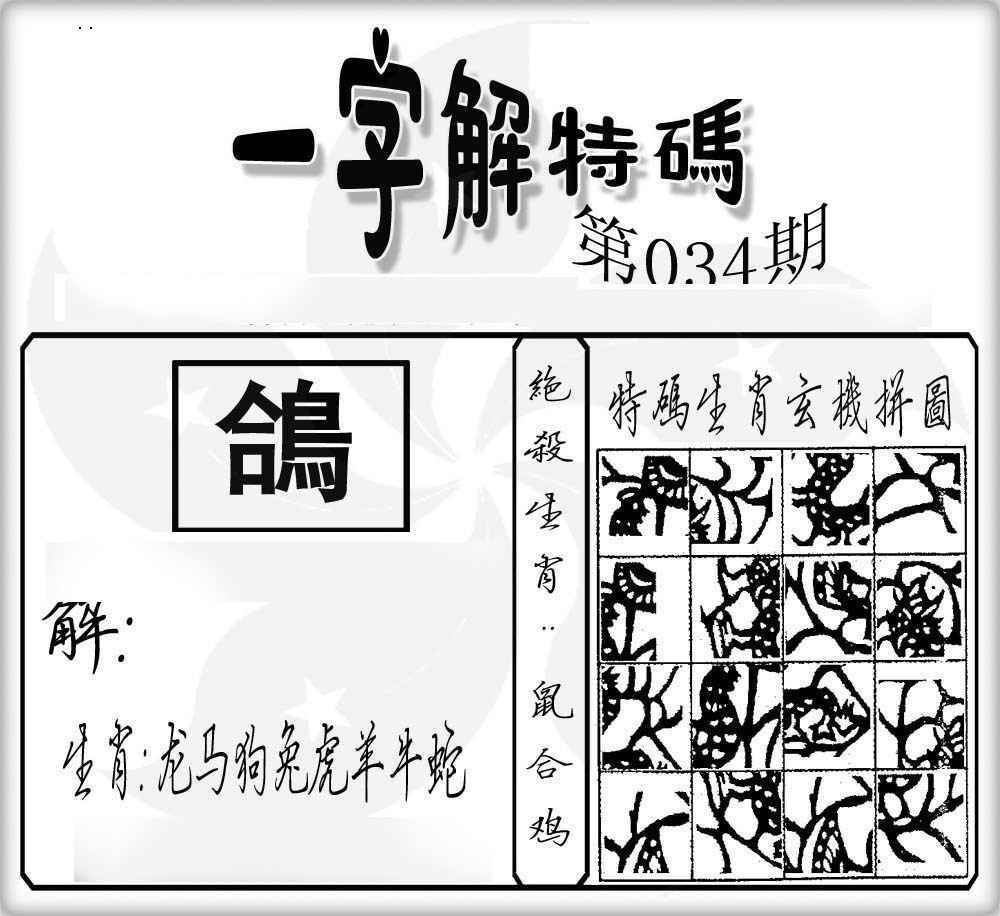 一字解特碼
第034期
鴿
解:
生肖:龙马狗兔虎羊牛蛇
絕殺生肖:鼠合鸡
特碼生肖玄機拼圖